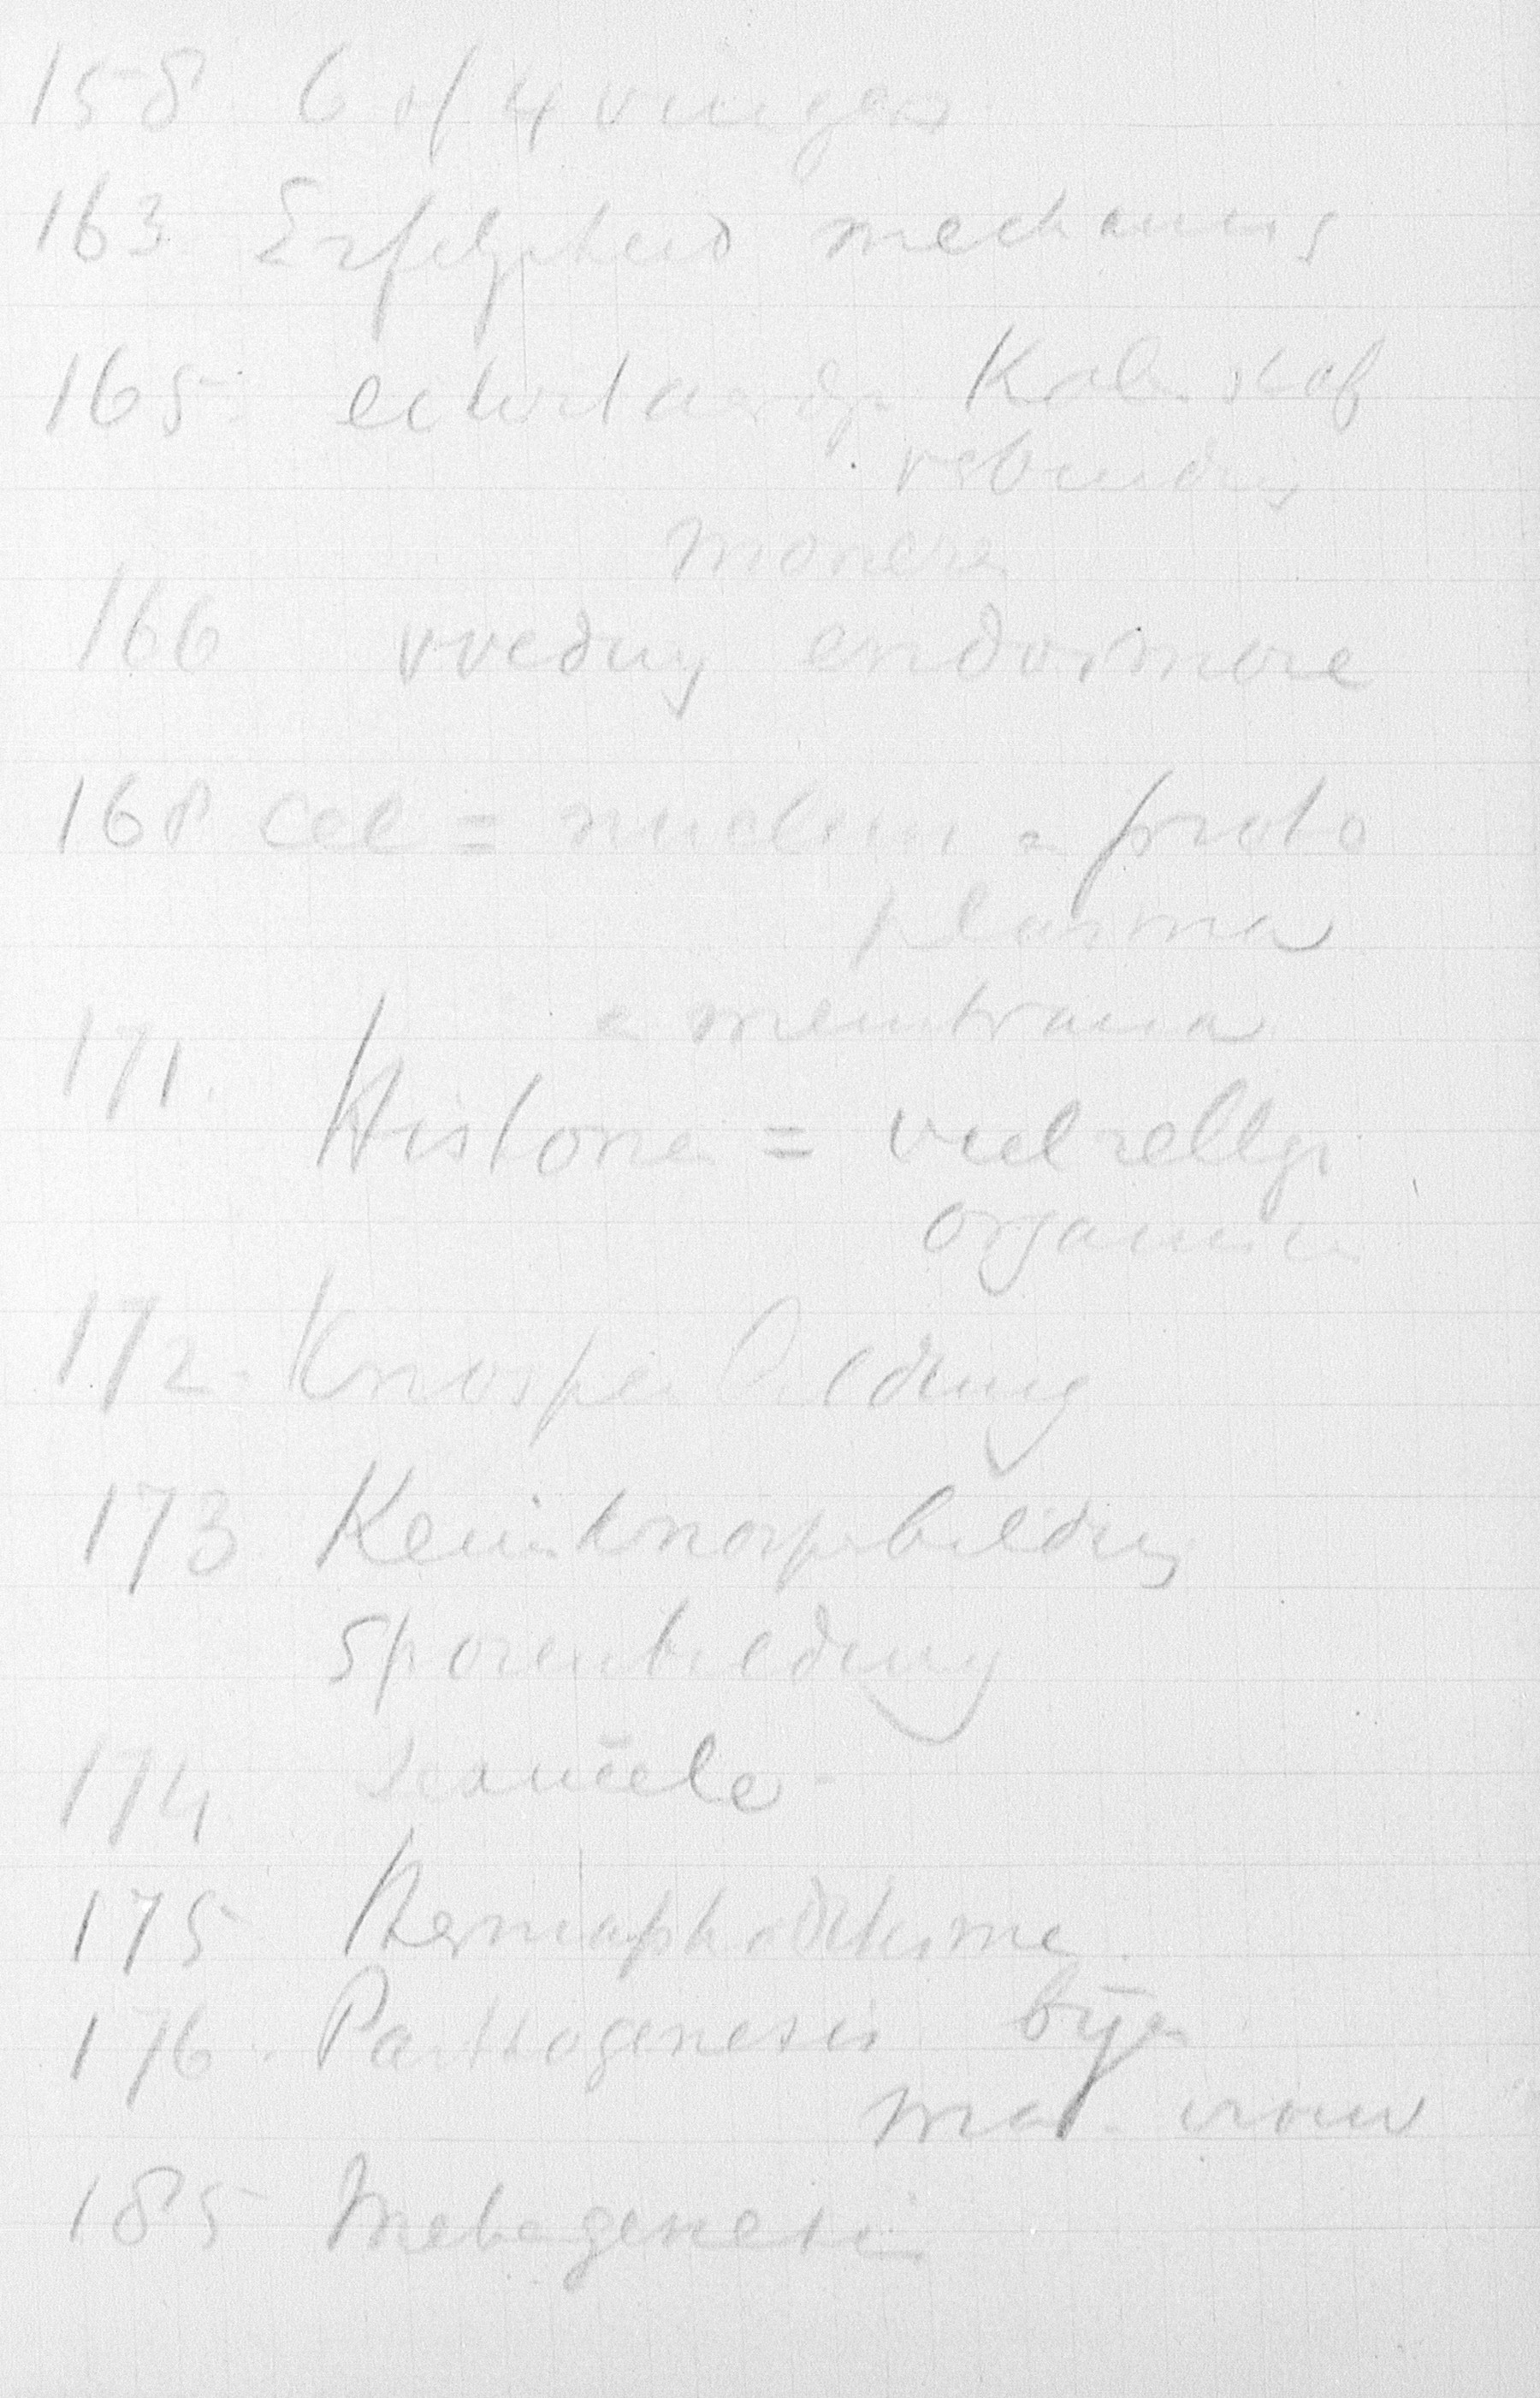 158 6 of 4 vingers
163 Erfelijkheid mechanis
165 eiwitaardge Koolstof
verbinding
moneren
166 voeding endosmose
168 cel = nucleus = proto
plasma
= membrana
171. Histonen = veelcellge
organismen
172. Knospenbildung
173 Keimknospbildung
Sporenbildung
174
175 Hermaphroditisme
176. Parthogenesis bijen
vrouw
185 Metagenesis